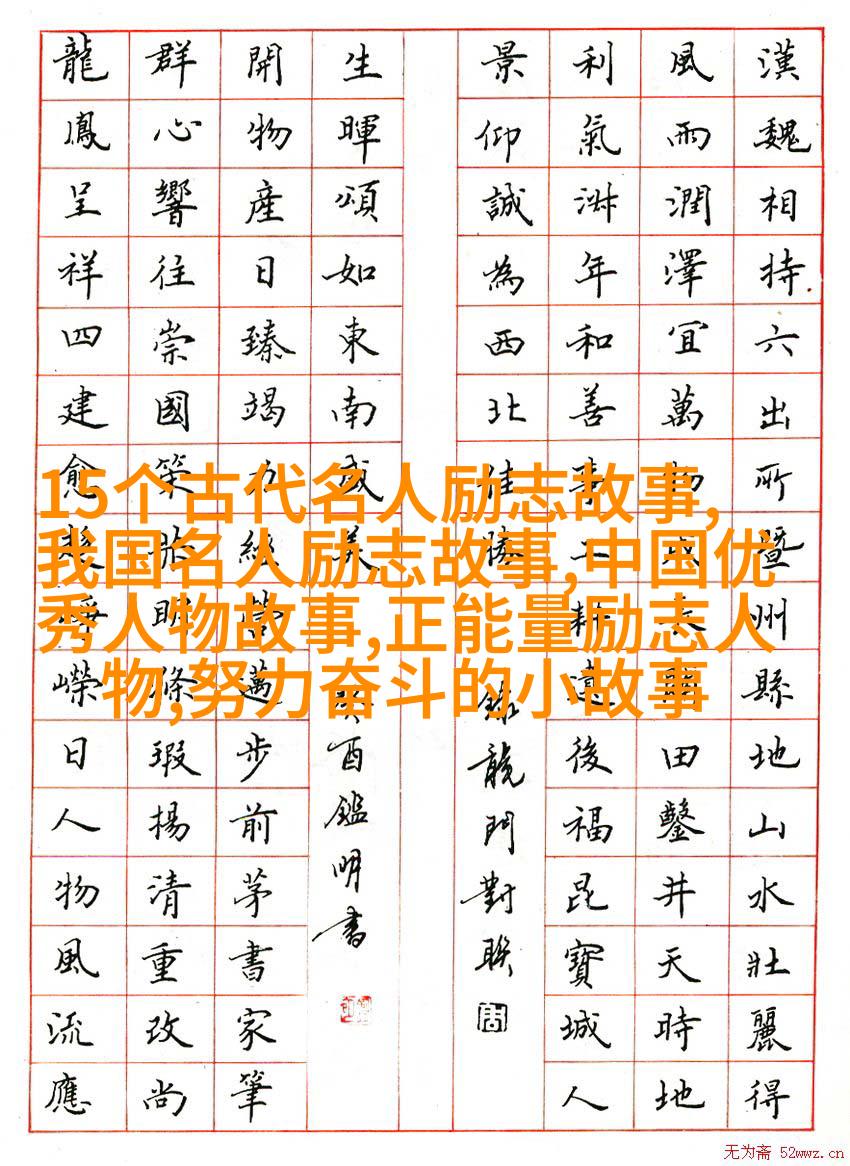 漢魏相持六出所暨州縣地山水壯麗得
風雨潤澤宜萬物成田鑿井天時地
利氣年和善事工耕遠後福昆寶城人
景仰誠為西北佳勝
錄龍門對聯
生暉頌如東南成美
癸酉鑑明書
開物產日臻竭力經營邁步前茅書家筆
群心響往崇國築明條瑕揚清重改尚
龍鳳呈祥四建愈崢嶸日人物風流應
15个古代名人励志故事,
我国名人励志故事,中国优
秀人物故事,正能量励志人
物,努力奋斗的小故事
无为斋 52wwz.cn